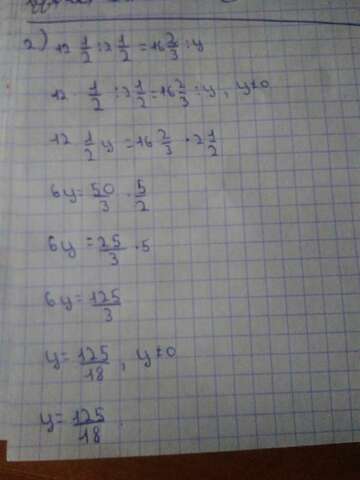 2) 12 1/2 : 2 1/2 = 16 2/3 : y
12 1/2 : 2 1/2 = 16 2/3 : y, y≠0
12 1/2 y = 16 2/3 · 2 1/2
6y = 50/3 · 5/2
6y = 25/3 · 5
6y = 125/3
y = 125/18, y≠0
y = 125/18.